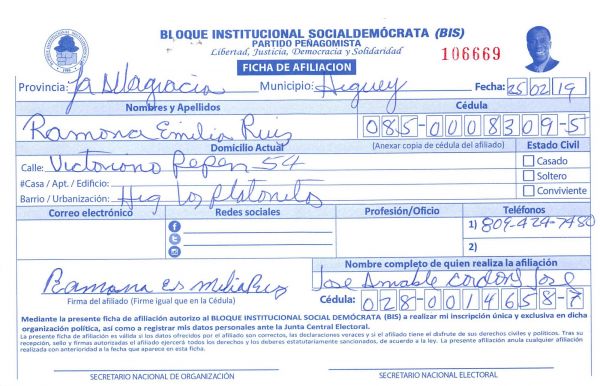 BLOQUE INSTITUCIONAL SOCIALDEMÓCRATA (BIS)
PARTIDO PEÑAGOMISTA
Libertad, Justicia, Democracia y Solidaridad
106669
FICHA DE AFILIACION
Provincia: La Altagracia Municipio: Higuey Fecha: 25/02/19
Nombres y Apellidos Cédula
Ramona Emilia Ruiz 085-0008309-5
Domicilio Actual (Anexar copia de cédula del afiliado) Estado Civil
Calle: Victoriano Pepen 54 Casado
#Casa / Apt. / Edificio: Soltero
Barrio / Urbanización: Hig Los Platanitos Conviviente
Correo electrónico Redes sociales Profesión/Oficio Teléfonos
1) 809-424-7480
2)
Nombre completo de quien realiza la afiliación
Ramona Es milia Ruiz Jose Amable Cordon Jose
Firma del afiliado (Firme igual que en la Cédula) Cédula: 028-0014658-7
Mediante la presente ficha de afiliación autorizo al BLOQUE INSTITUCIONAL SOCIAL DEMÓCRATA (BIS) a realizar mi inscripción única y exclusiva en dicha
organización política, así como a registrar mis datos personales ante la Junta Central Electoral.
La presente ficha de afiliación es válida si los datos ofrecidos por el afiliado son correctos, las declaraciones veraces y si el afiliado tiene el disfrute de sus derechos civiles y políticos. Tras su
recepción, sello y firmas autorizadas el afiliado ejercerá todos los derechos y los deberes estatutariamente sancionados, de acuerdo a la ley. La presente afiliación anula cualquier afiliación
realizada con anterioridad a la fecha que aparece en esta ficha.
SECRETARIO NACIONAL DE ORGANIZACIÓN SECRETARIO NACIONAL ELECTORAL